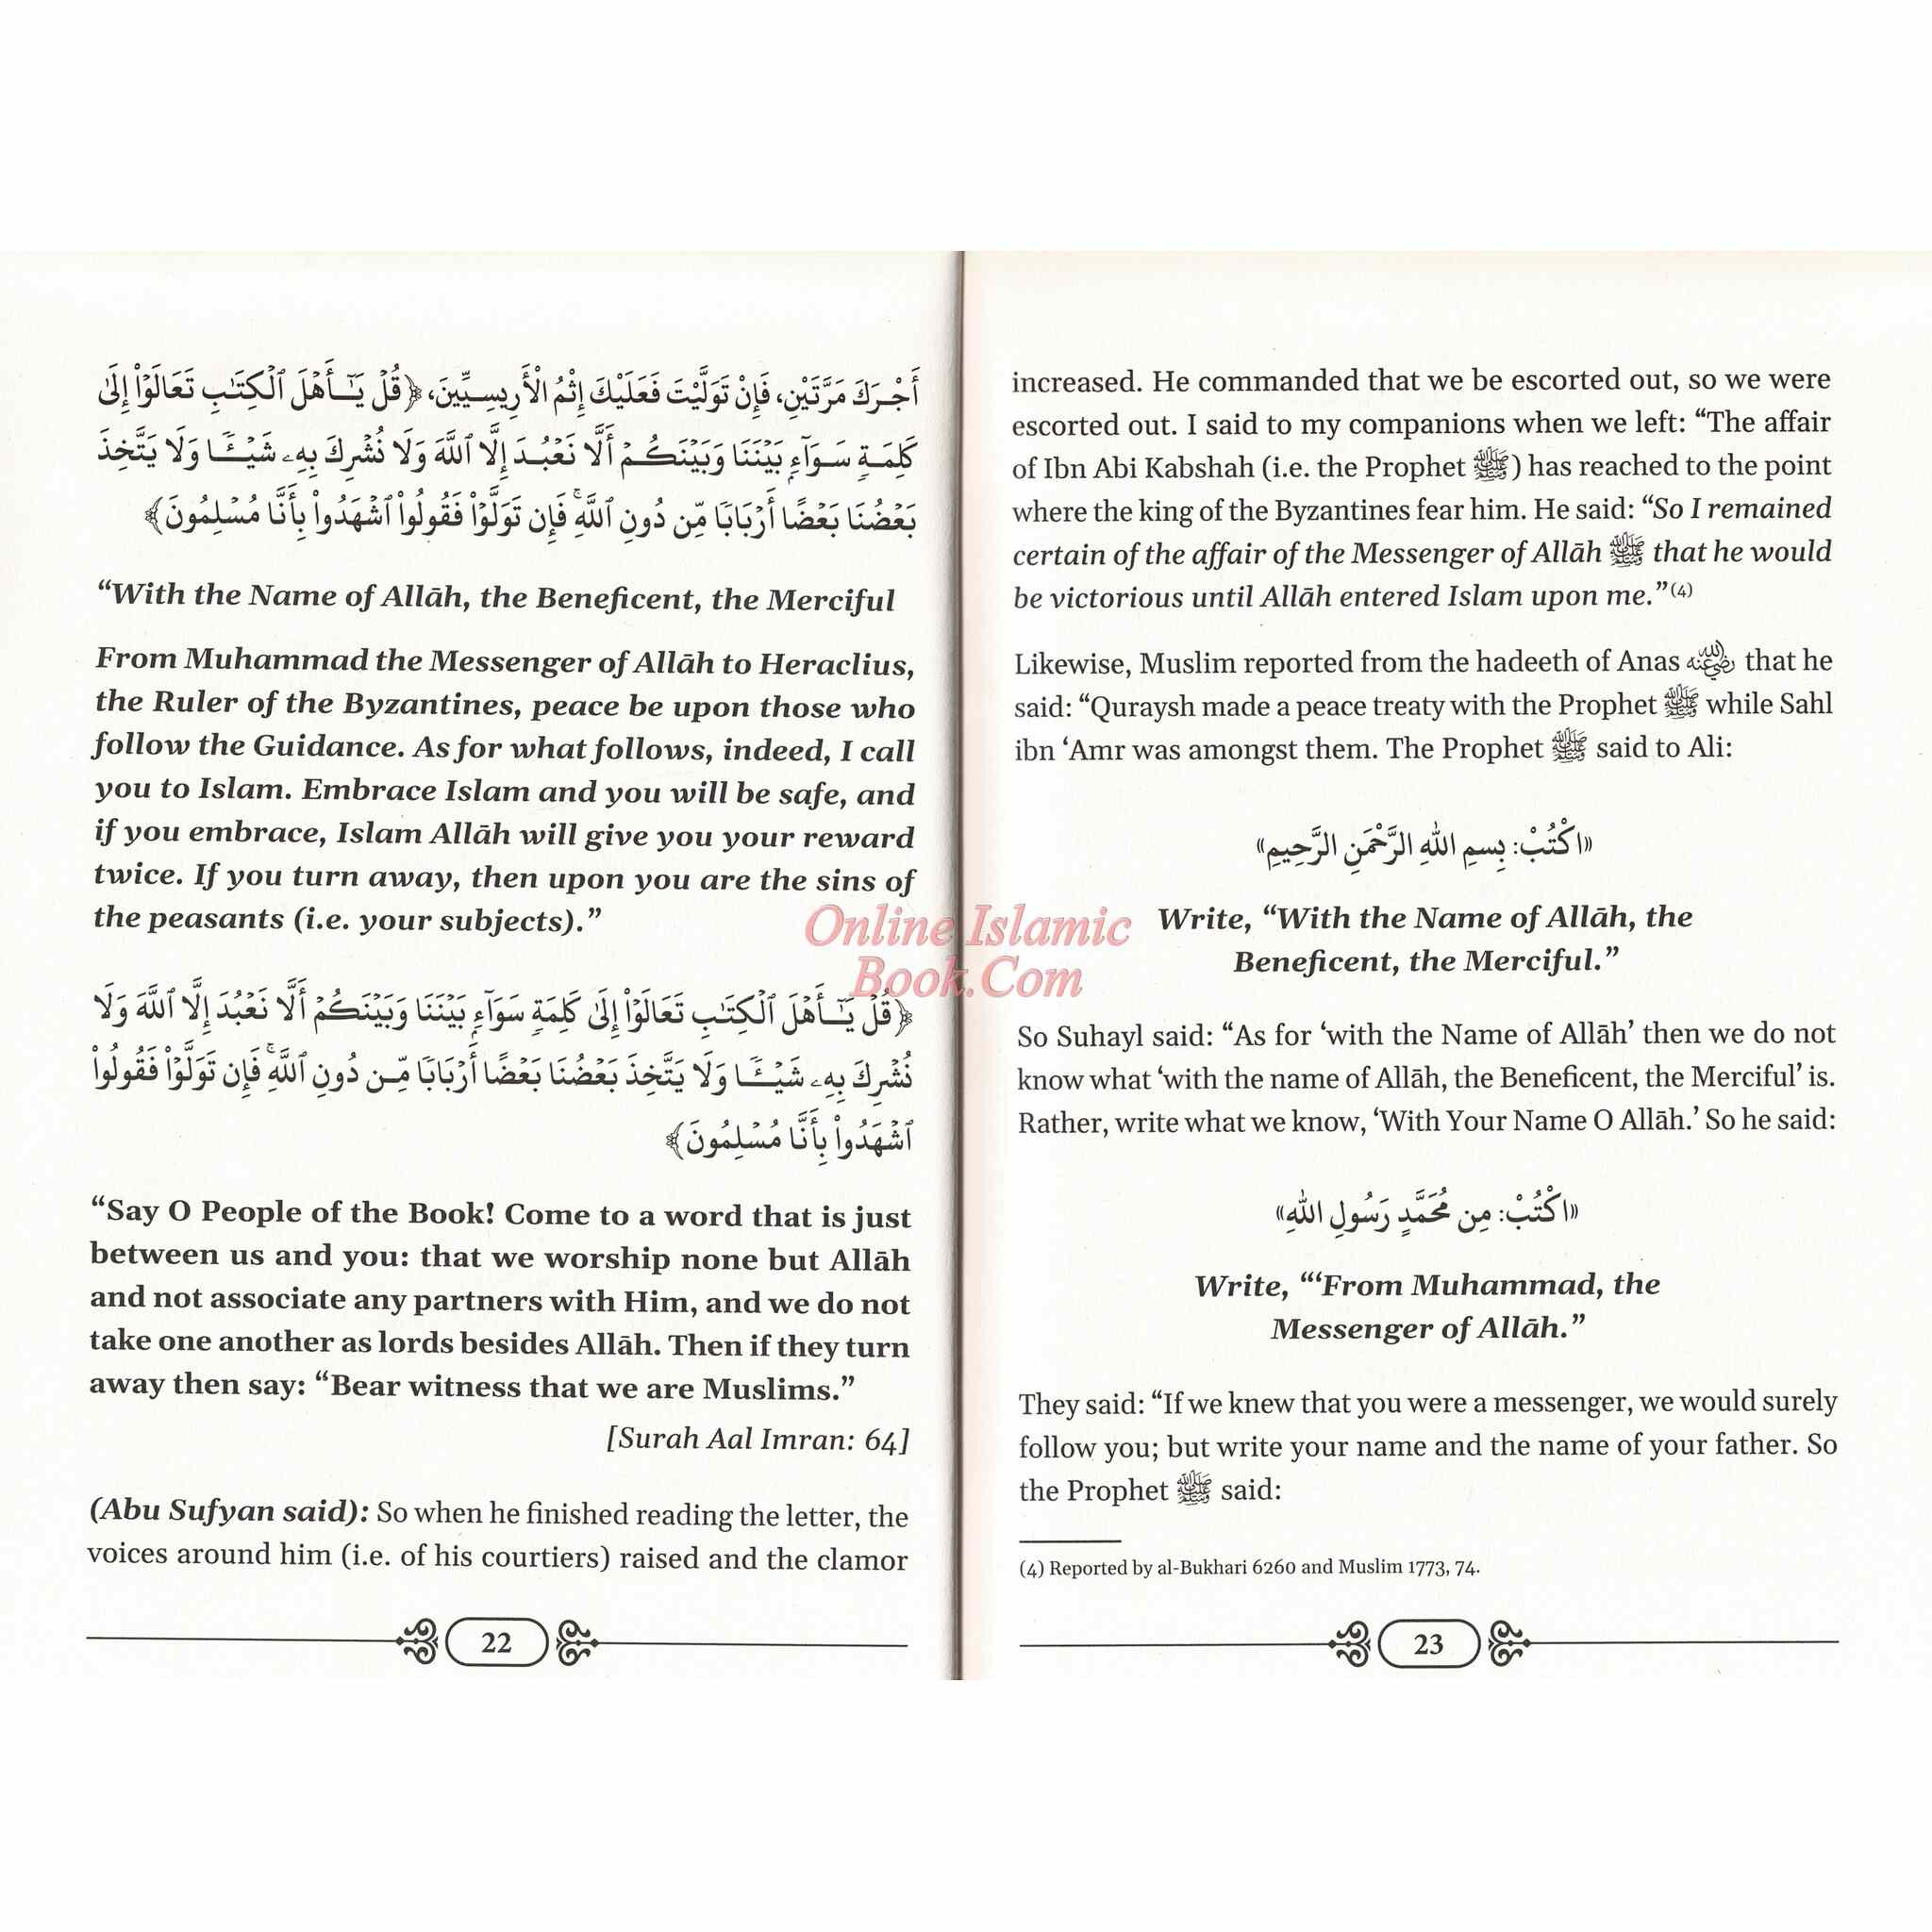 أَجْرَكَ مَرَّتَيْنِ، فَإِنْ تَوَلَّيْتَ فَعَلَيْكَ إِثْمُ الْأَرِيسِيِّينَ، ﴿قُلْ يَـٰٓأَهْلَ ٱلْكِتَـٰبِ تَعَالَوْا۟ إِلَىٰ
كَلِمَةٍ سَوَآءٍۭ بَيْنَنَا وَبَيْنَكُمْ أَلَّا نَعْبُدَ إِلَّا ٱللَّهَ وَلَا نُشْرِكَ بِهِۦ شَيْـًٔا وَلَا يَتَّخِذَ
بَعْضُنَا بَعْضًا أَرْبَابًا مِّن دُونِ ٱللَّهِ ۚ فَإِن تَوَلَّوْا۟ فَقُولُوا۟ ٱشْهَدُوا۟ بِأَنَّا مُسْلِمُونَ﴾
“With the Name of Allāh, the Beneficent, the Merciful
From Muhammad the Messenger of Allāh to Heraclius,
the Ruler of the Byzantines, peace be upon those who
follow the Guidance. As for what follows, indeed, I call
you to Islam. Embrace Islam and you will be safe, and
if you embrace, Islam Allāh will give you your reward
twice. If you turn away, then upon you are the sins of
the peasants (i.e. your subjects).”
﴿قُلْ يَـٰٓأَهْلَ ٱلْكِتَـٰبِ تَعَالَوْا۟ إِلَىٰ كَلِمَةٍ سَوَآءٍۭ بَيْنَنَا وَبَيْنَكُمْ أَلَّا نَعْبُدَ إِلَّا ٱللَّهَ وَلَا
نُشْرِكَ بِهِۦ شَيْـًٔا وَلَا يَتَّخِذَ بَعْضُنَا بَعْضًا أَرْبَابًا مِّن دُونِ ٱللَّهِ ۚ فَإِن تَوَلَّوْا۟ فَقُولُوا۟
ٱشْهَدُوا۟ بِأَنَّا مُسْلِمُونَ﴾
“Say O People of the Book! Come to a word that is just
between us and you: that we worship none but Allāh
and not associate any partners with Him, and we do not
take one another as lords besides Allāh. Then if they turn
away then say: “Bear witness that we are Muslims.”
[Surah Aal Imran: 64]
(Abu Sufyan said): So when he finished reading the letter, the
voices around him (i.e. of his courtiers) raised and the clamor
22
increased. He commanded that we be escorted out, so we were
escorted out. I said to my companions when we left: “The affair
of Ibn Abi Kabshah (i.e. the Prophet ﷺ) has reached to the point
where the king of the Byzantines fear him. He said: “So I remained
certain of the affair of the Messenger of Allāh ﷺ that he would
be victorious until Allāh entered Islam upon me.”(4)
Likewise, Muslim reported from the hadeeth of Anas رضي الله عنه that he
said: “Quraysh made a peace treaty with the Prophet ﷺ while Sahl
ibn ‘Amr was amongst them. The Prophet ﷺ said to Ali:
«اكْتُبْ: بِسمِ اللهِ الرَّحْمَنِ الرَّحِيمِ»
Write, “With the Name of Allāh, the
Beneficent, the Merciful.”
So Suhayl said: “As for ‘with the Name of Allāh’ then we do not
know what ‘with the name of Allāh, the Beneficent, the Merciful’ is.
Rather, write what we know, ‘With Your Name O Allāh.’ So he said:
«اكْتُبْ: مِن مُحَمَّدٍ رَسُولِ اللهِ»
Write, “‘From Muhammad, the
Messenger of Allāh.”
They said: “If we knew that you were a messenger, we would surely
follow you; but write your name and the name of your father. So
the Prophet ﷺ said:
(4) Reported by al-Bukhari 6260 and Muslim 1773, 74.
23
Online Islamic
Book.Com